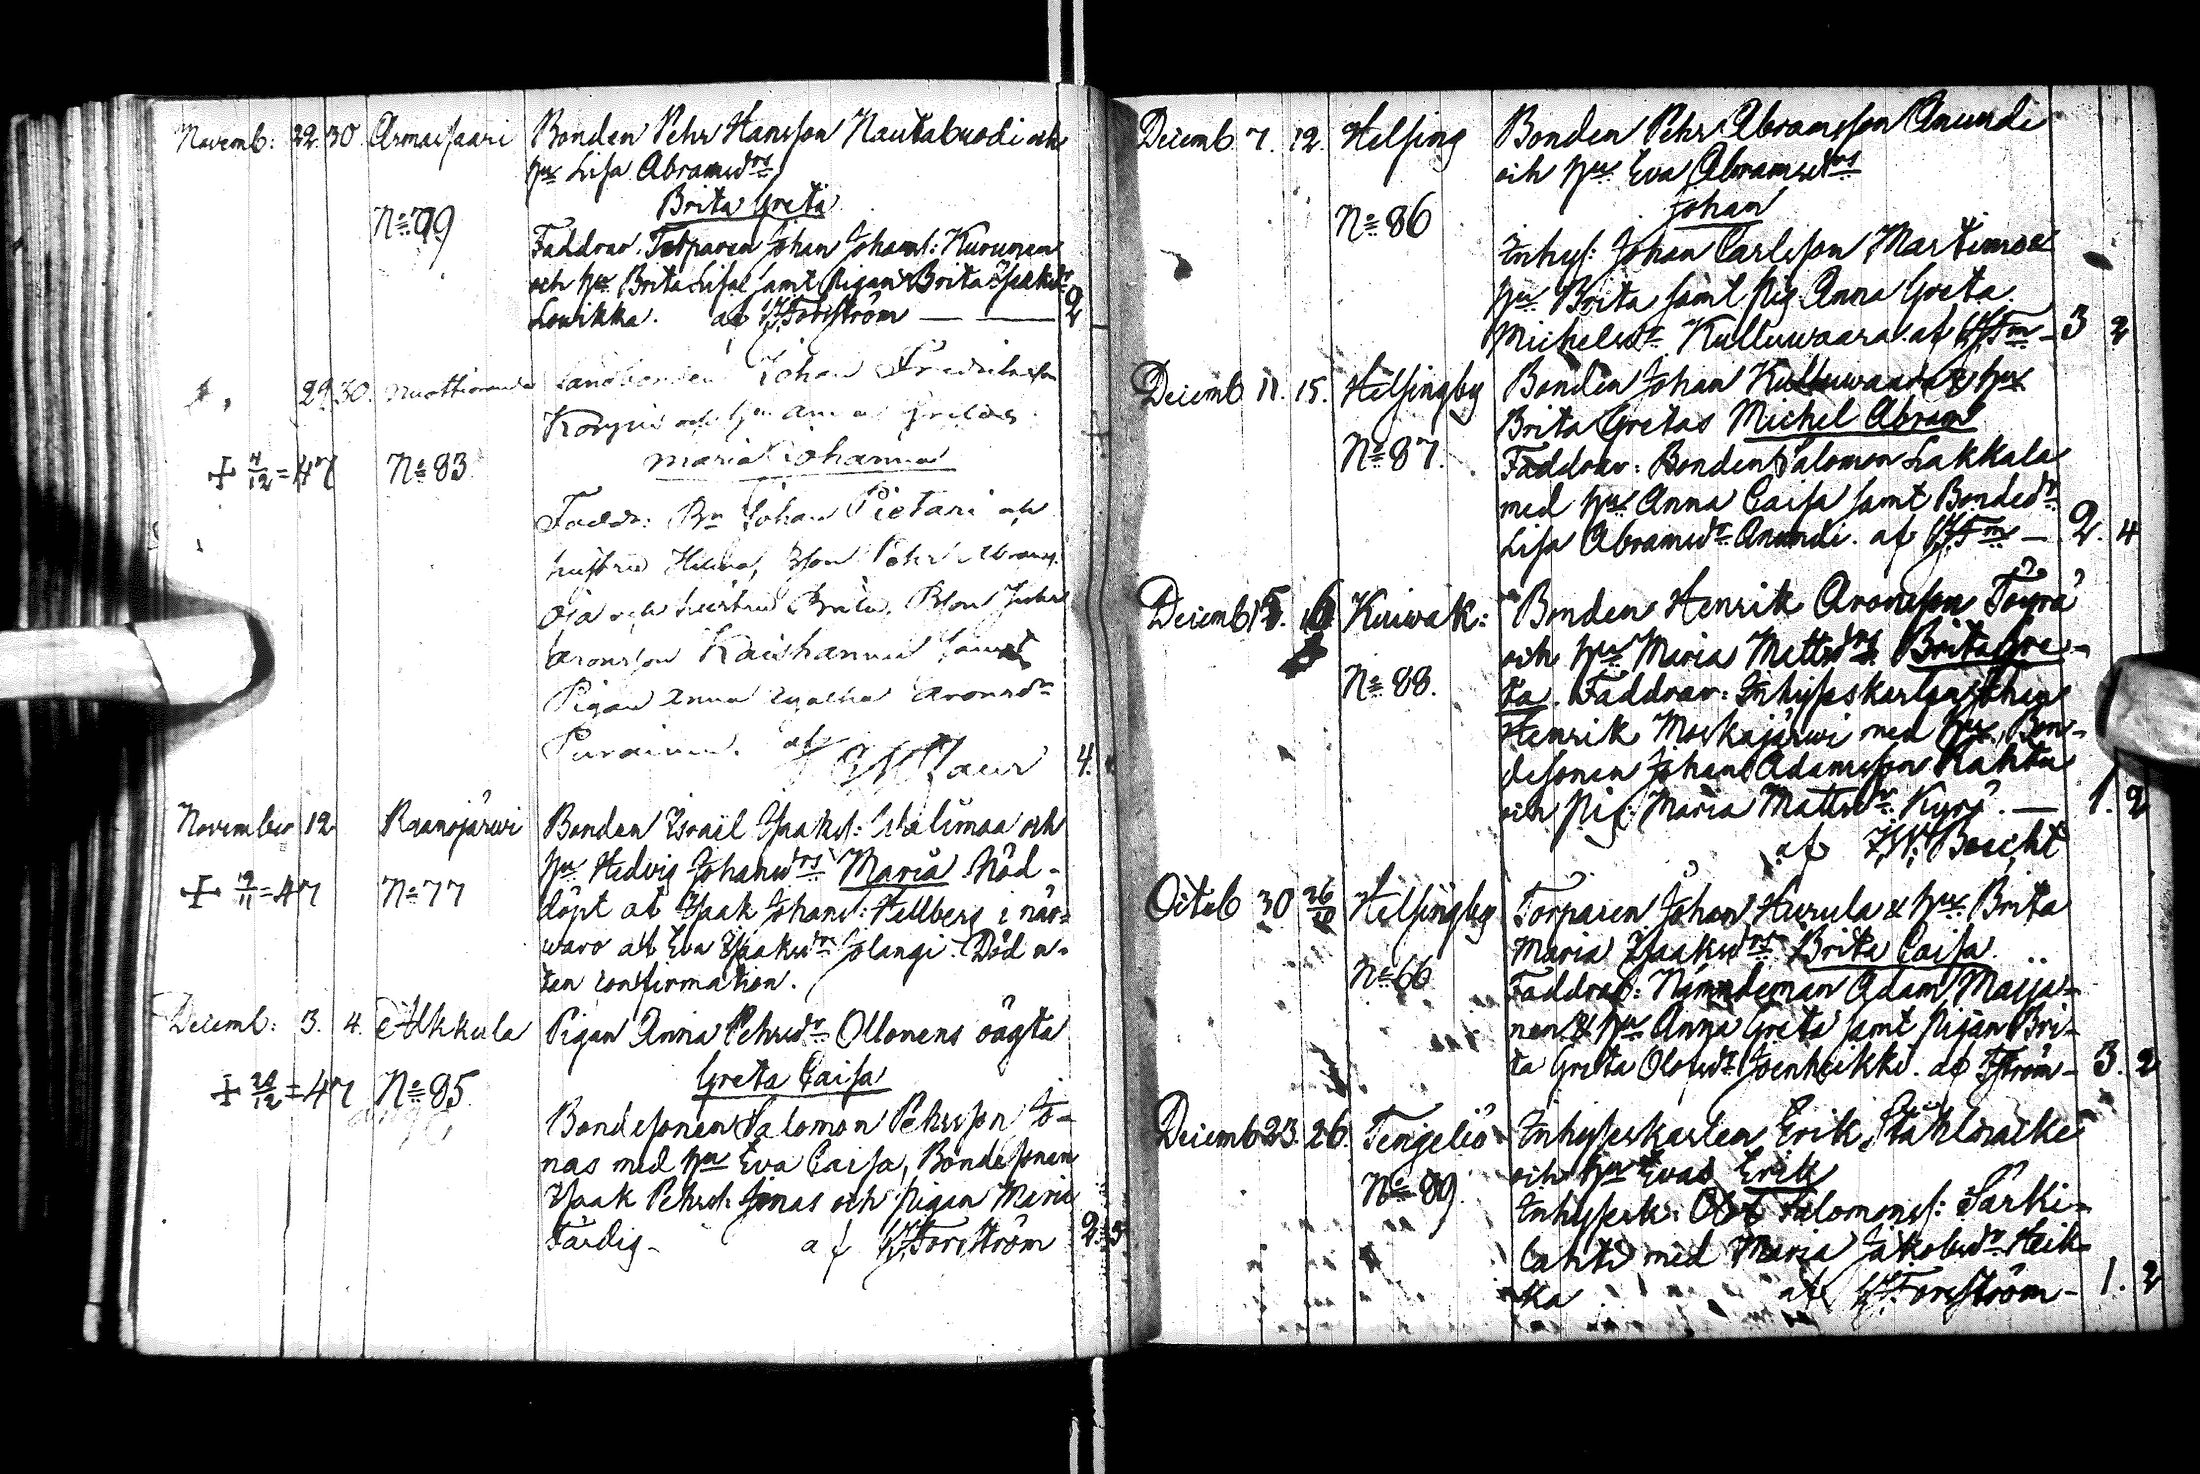 Novemb: 22. 30. Armassaari Bonden Pehr Hansson Nautabuodi och
hu Lisa Abramsdrs
Brita Greta
No 79
Faddrar. Torparen Johan Johans: Kurunen
och hu Brita Lisa samt Pigan Brita Isaksdr
Lovikka. af Forsström — — 2
" 29. 30. Landbonden Johan Fredriksson
Korpi och hu Anna Gretas
+ 7/12 = 47 No 83 Maria Johanna
Faddr: Bn Johan Pietari och
hustru Helena, Bson Pehr Abrams.
Oja och hustru Brita, Bson Johan
Aronsson Kaishannu samt
Pigan Anna Agatha Aronsdr
Puranen. af
4.
November 12 Raanojärwi Bonden Israil Isaks: och
hu Hedvig Johansdrs Maria Nöd-
+ 19/11 = 47 No 77 döpt at Isaak Johans: Hellberg i när-
waro at Eva Isaksdr Jolangi. Död u-
tan confirmation.
Decemb: 3. 4. Alkkula Pigan Anna Pehrsdr Ollonens oägta
Greta Caisa
+ 20/12 = 47 No 85
Bondesonen Salomon Pehrsson Jo-
nas med hu Eva Caisa, Bondesonen
Isaak Pehrs: Jonas och pigan Maria
Färdig- af Forsström 2. 3
Decemb 7. 12. Helsing Bonden Pehr Abramsson Anundi
och hu Eva Abramsdrs
Johan
No 86
Inhys: Johan Carlsson Martimoe
hu Brita samt Pig. Anna Greta
Michelsdr Kulluwaara. af Fm - 3 2
Decemb 11. 15. Helsingby Bonden Johan Kulluwaara & hu
Brita Gretas Michel Abram
No 87. Faddrar: Bonden Salomon Lakkala
med hu Anna Caisa samt Bondedr
Lisa Abramsdr Anundi. af Fm — 2. 4
Decemb 15. 16 Kuiwak: Bonden Henrik Aronsson Töyrä
och hu Maria Mattsdrs Brita Gre-
No 88. ta. Faddrar: Inhyseskarlen Johan
Henrik Moskajärwi med hu, Bon-
desonen Johan Adamsson Kahtu
och Pig: Maria Mattsdr Kyrö. — 1. 2
af Bescht
Octob 30 26/10 Helsingby Torparen Johan Hurula & hu Brita
Maria Isaksdrs Brita Caisa.
No 66 Faddrar: Nämndeman Adam Maija-
nen & hu Anna Greta samt pigan Bri-
ta Greta Olofsdr Joenheikki. af Fström - 3. 2
Decemb 23. 26. Tengeliö Inhyseskarlen Erik Ståhlnacke
och hu Evas Erik
No 89. Inhysesk: Olof Salomons: Särki-
lahti med Maria Jakobsdr Heik-
ka af Forsström - 1. 2